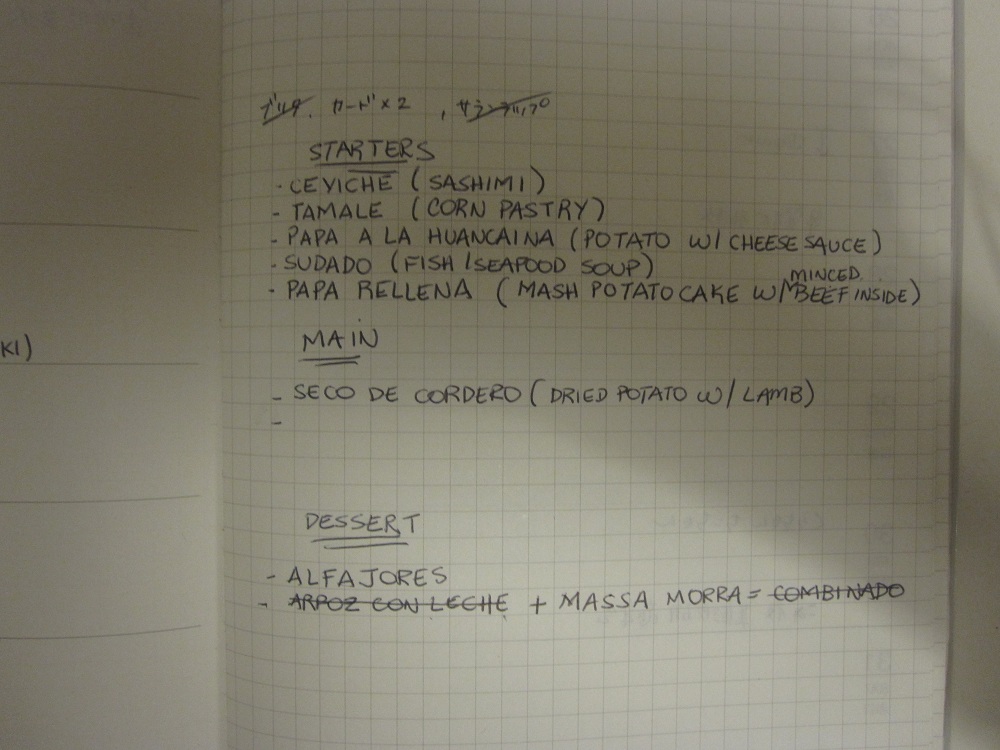 カード×2
STARTERS
- CEVICHE (SASHIMI)
- TAMALE (CORN PASTRY)
- PAPA A LA HUANCAINA (POTATO W/ CHEESE SAUCE)
- SUDADO (FISH/SEAFOOD SOUP)
- PAPA RELLENA (MASH POTATO CAKE W/ MINCED BEEF INSIDE)
MAIN
- SECO DE CORDERO (DRIED POTATO W/ LAMB)
-
DESSERT
- ALFAJORES
- ARROZ CON LECHE + MASSA MORRA = COMBINADO
KI)